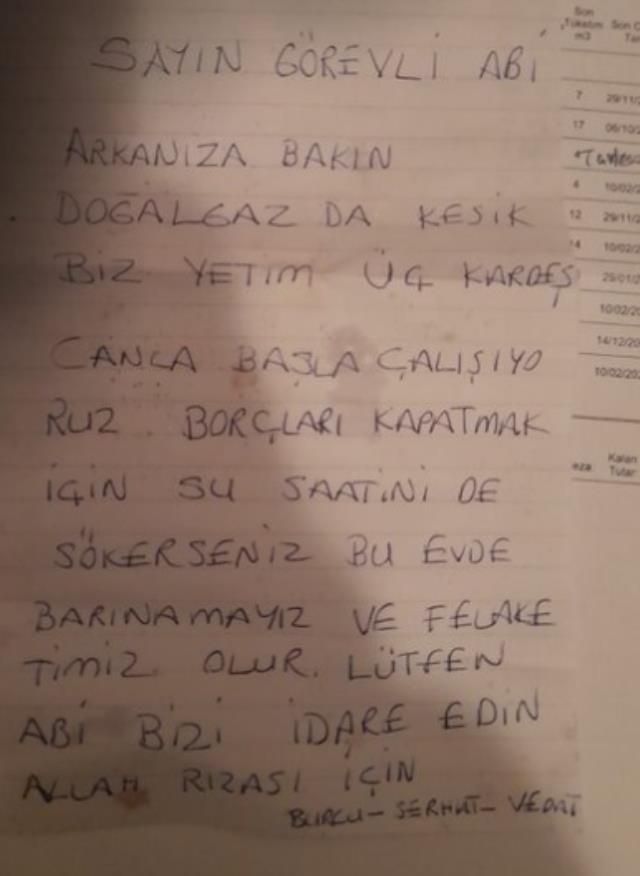 SAYIN GÖREVLİ ABİ
ARKANIZA BAKIN
DOĞALGAZ DA KESİK
BİZ YETİM ÜÇ KARDEŞ
CANLA BAŞLA ÇALIŞIYO
RUZ. BORÇLARI KAPATMAK
İÇİN SU SAATİNİ DE
SÖKERSENİZ BU EVDE
BARINAMAYIZ VE FELAKE
TİMİZ OLUR. LÜTFEN
ABİ BİZİ İDARE EDİN
ALLAH RIZASI İÇİN
BURCU - SERHAT - VEDAT
Son
Tüketim
m3
Son
7
29/11/2
17
06/10/2
4
10/02/2
12
29/11/2
10/02/2
29/01/2
10/02/20
14/12/20
10/02/202
Kalan
Tutar